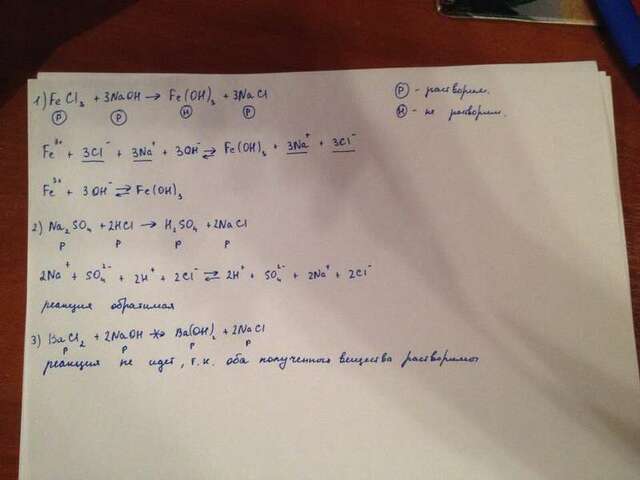 1) FeCl₃ + 3NaOH → Fe(OH)₃ + 3NaCl
Р Р Н Р
Р - растворим.
Н - не растворим.
Fe³⁺ + 3Cl⁻ + 3Na⁺ + 3OH⁻ ⇄ Fe(OH)₃ + 3Na⁺ + 3Cl⁻
Fe³⁺ + 3OH⁻ ⇄ Fe(OH)₃
2) Na₂SO₄ + 2HCl → H₂SO₄ + 2NaCl
Р Р Р Р
2Na⁺ + SO₄²⁻ + 2H⁺ + 2Cl⁻ ⇄ 2H⁺ + SO₄²⁻ + 2Na⁺ + 2Cl⁻
реакция обратимая
3) BaCl₂ + 2NaOH ↛ Ba(OH)₂ + 2NaCl
Р Р Р Р
реакция не идет, т.к. оба полученных вещества растворимы